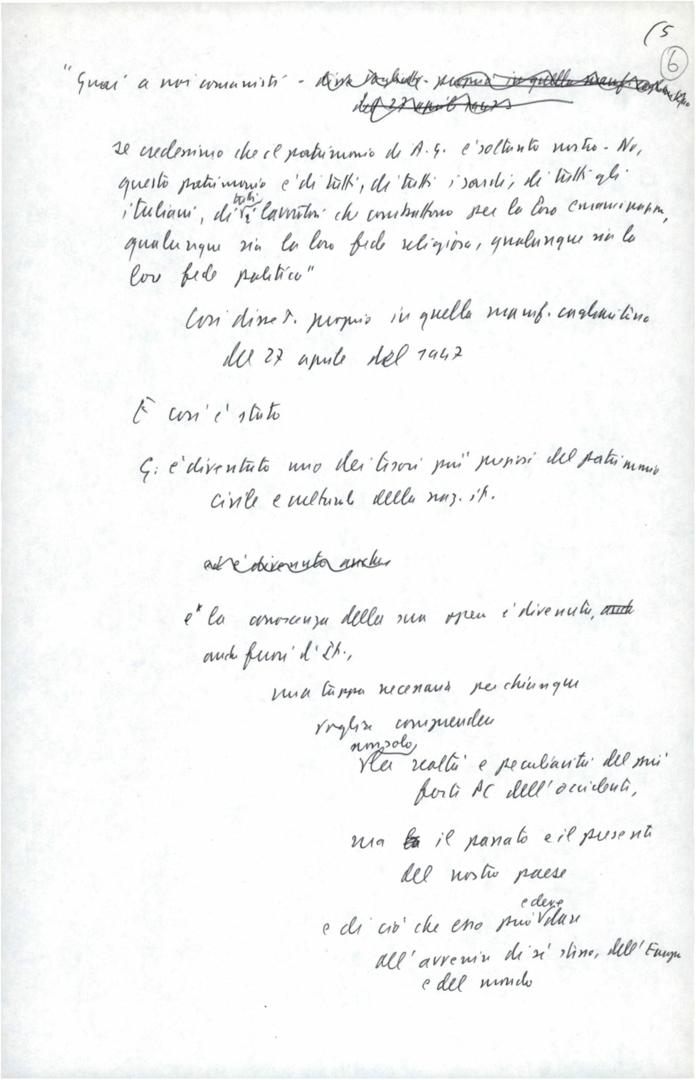 (5
6
"Guai a noi comunisti -
se credessimo che il patrimonio di A.G. è soltanto nostro - No,
questo patrimonio è di tutti, di tutti i sardi, di tutti gli
italiani, di tutti i lavoratori che combattono per la loro emancipazione,
qualunque sia la loro fede religiosa, qualunque sia la
loro fede politica"
Così disse T. proprio in quella manif. cagliaritana
del 27 aprile del 1947
E così è stato
G. è diventato uno dei tesori più preziosi del patrimonio
civile e culturale della naz. it.
ed è divenuta anche
e la conoscenza della sua opera è divenuta,
anche fuori d'It.,
una tappa necessaria per chiunque
voglia comprendere
non solo
la realtà e peculiarità del più
forte PC dell'occidente,
ma il passato e il presente
del nostro paese
e deve
e di ciò che esso può dare
all'avvenire di sé stesso, dell'Europa
e del mondo